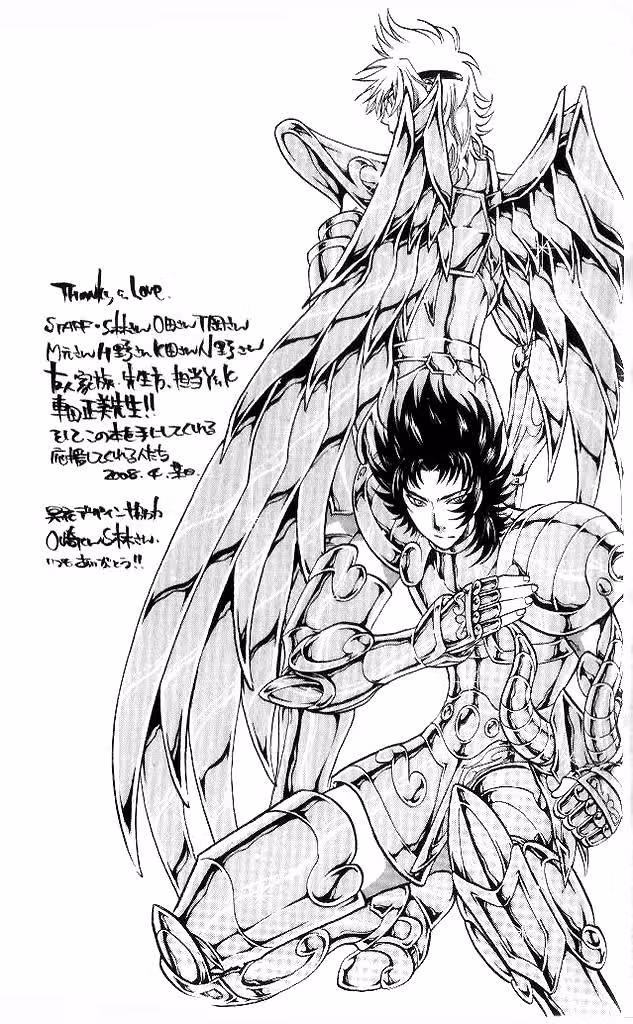 Thanks & Love.
STAFF・S林さん O田さん T岡さん
M元さん H野さん K田さん N野さん
友人 家族 先生方、担当Y.K
車田正美先生!!
そしてこの本を手にしてくれる
応援してくれる人たち
2008. 4.
冥衣デザイン協力
O崎さん S林さん
いつもありがとう!!